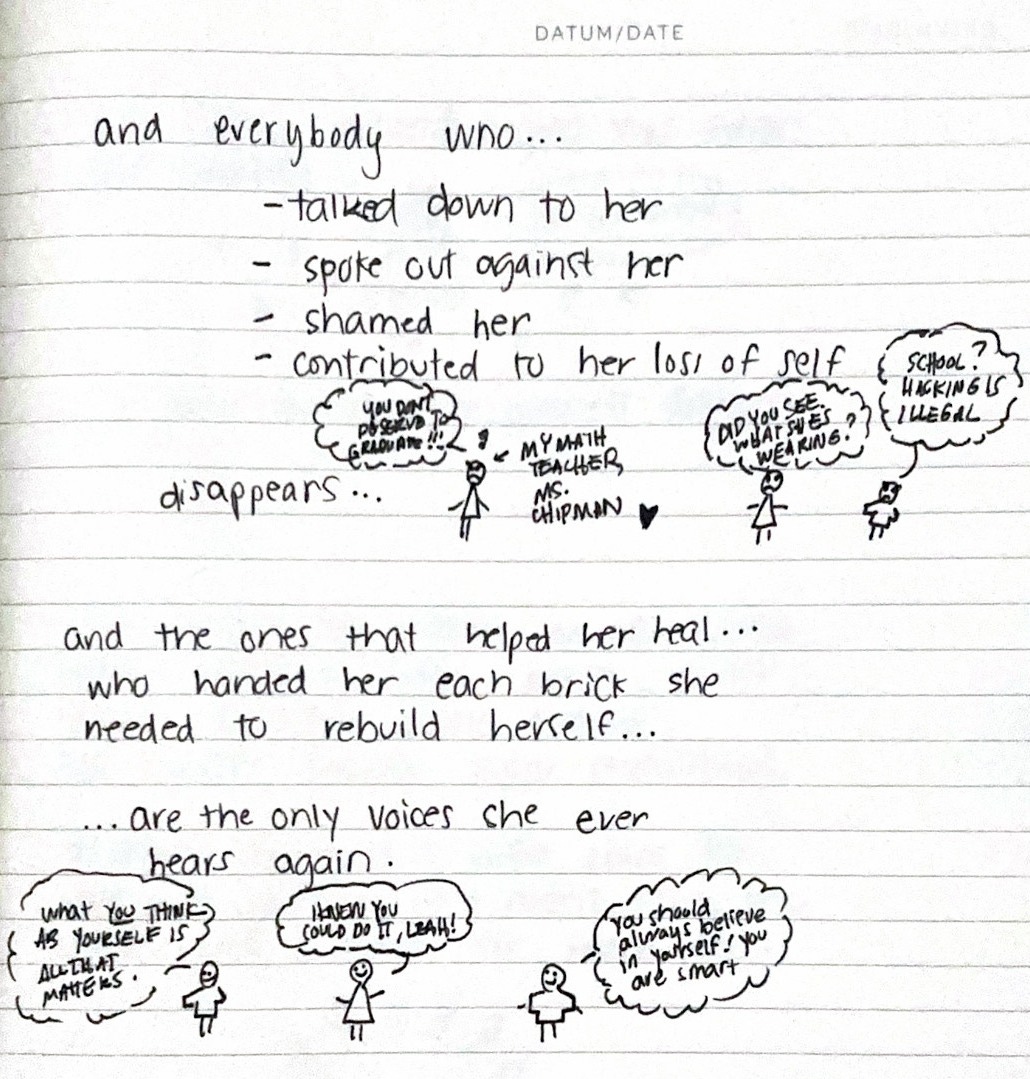 DATUM/DATE
and everybody who...
-talked down to her
- spoke out against her
- shamed her
- contributed to her loss of self
SCHOOL?
HACKING IS
ILLEGAL
YOU DON'T
DESERVE TO
GRADUATE!!!
DID YOU SEE
WHAT SHE'S
WEARING?
MY MATH
TEACHER,
MS.
CHIPMAN
disappears...
and the ones that helped her heal...
who handed her each brick she
needed to rebuild herself...
...are the only voices she ever
hears again.
What YOU THINK
AB YOURSELF IS
ALL THAT
MATTERS.
I KNEW YOU
COULD DO IT, LEAH!
You should
always believe
in yourself! you
are smart